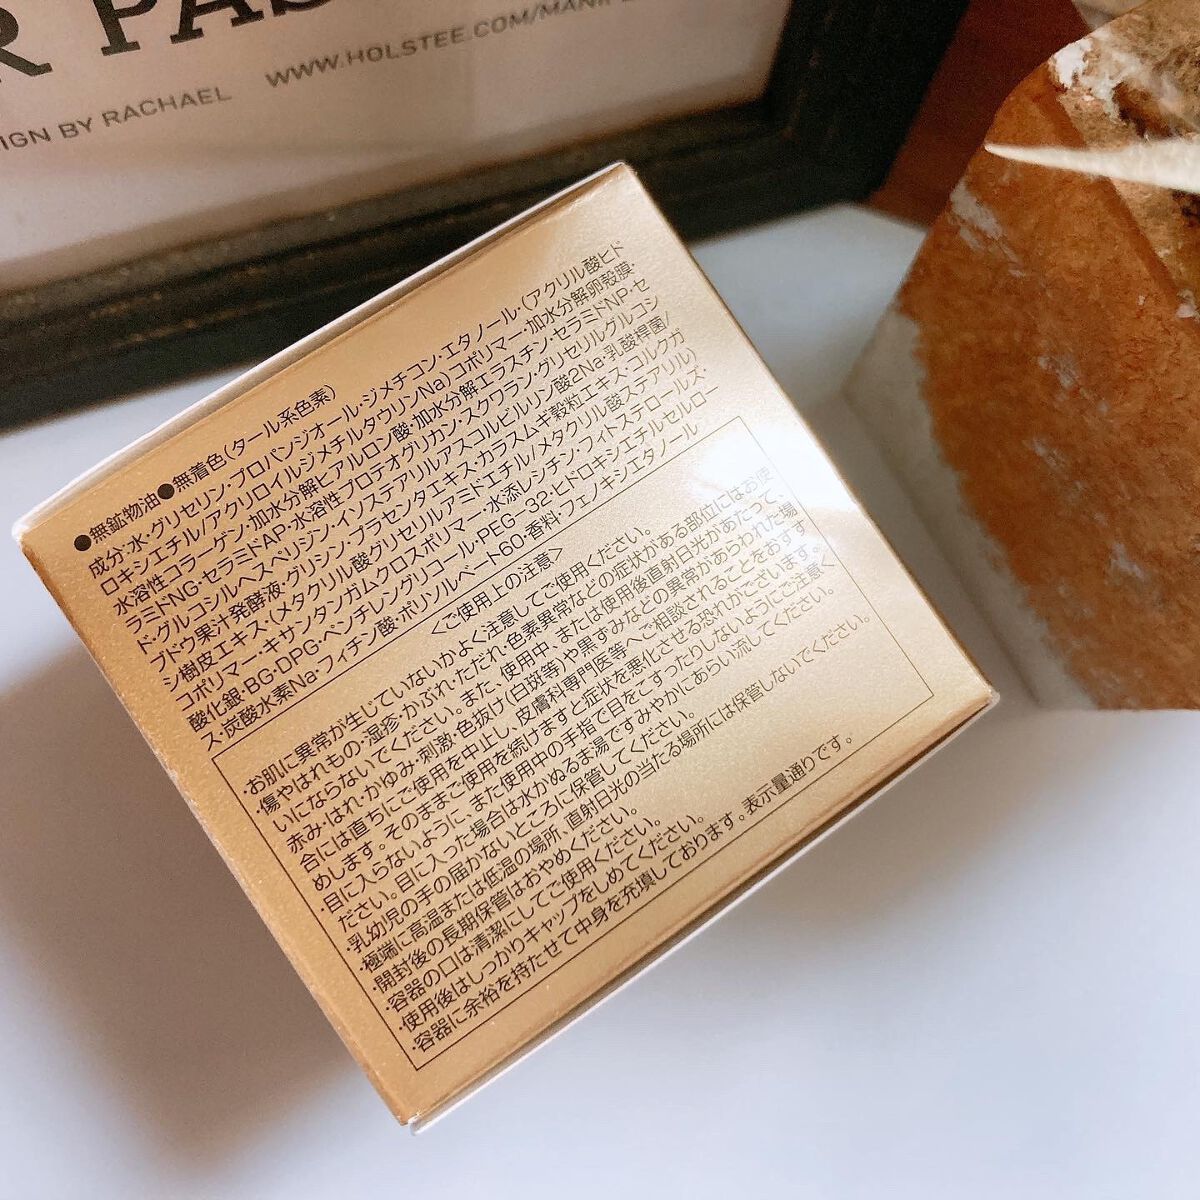 R PAS
IGN BY RACHAEL WWW.HOLSTEE.COM/MANIFE
●無鉱物油●無着色(タール系色素)
成分:水・グリセリン・プロパンジオール・ジメチコン・エタノール・(アクリル酸ヒド
ロキシエチル/アクリロイルジメチルタウリンNa)コポリマー・加水分解卵殻膜・
水溶性コラーゲン・加水分解ヒアルロン酸・加水分解エラスチン・セラミドNP・セ
ラミドNG・セラミドAP・水溶性プロテオグリカン・スクワラン・グリセリルグルコシ
ド・グルコシルヘスペリジン・イソステアリルアスコルビルリン酸2Na・乳酸桿菌/
ブドウ果汁発酵液・グリシン・プラセンタエキス・カラスムギ穀粒エキス・コルクガ
シ樹皮エキス・(メタクリル酸グリセリルアミドエチル/メタクリル酸ステアリル)
コポリマー・キサンタンガムクロスポリマー・水添レシチン・フィトステロールズ・
酸化銀・BG・DPG・ペンチレングリコール・PEG-32・ヒドロキシエチルセルロー
ス・炭酸水素Na・フィチン酸・ポリソルベート60・香料・フェノキシエタノール
<ご使用上の注意>
・お肌に異常が生じていないかよく注意してご使用ください。
・傷やはれもの・湿疹・かぶれ・ただれ・色素異常などの症状がある部位にはお使
いにならないでください。また、使用中、または使用後直射日光があたって、
赤み・はれ・かゆみ・刺激・色抜け(白斑等)や黒ずみなどの異常があらわれた場
合には直ちにご使用を中止し、皮膚科専門医等へご相談されることをおすす
めします。そのままご使用を続けますと症状を悪化させる恐れがございます。
・目に入らないように、また使用中の手指で目をこすったりしないようにご注意く
ださい。目に入った場合は水かぬるま湯ですみやかにあらい流してください。
・乳幼児の手の届かないところに保管してください。
・極端に高温または低温の場所、直射日光の当たる場所には保管しないでください。
・開封後の長期保管はおやめください。
・容器の口は清潔にしてご使用ください。
・使用後はしっかりキャップをしめてください。
・容器に余裕を持たせて中身を充填しております。表示量通りです。